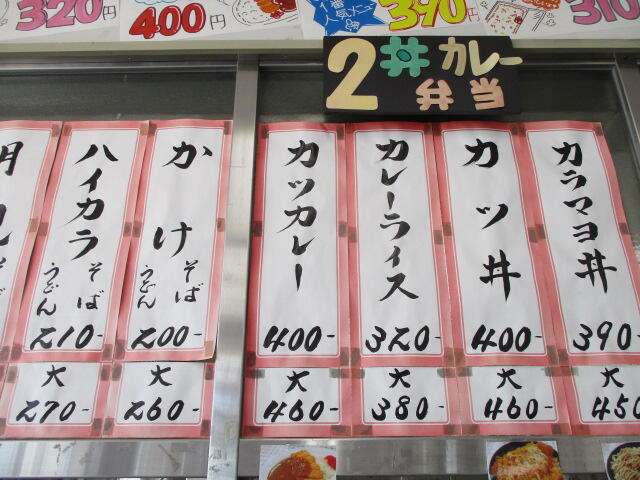 320円
400円
1番
人気メニュー
390円
310
2 丼 カレー
弁当
カラマヨ丼
390-
大
450
カツ丼
400-
大
460-
カレーライス
320-
大
380-
カツカレー
400-
大
460-
かけ
そば
うどん
200-
大
260-
ハイカラ
そば
うどん
210-
大
270-